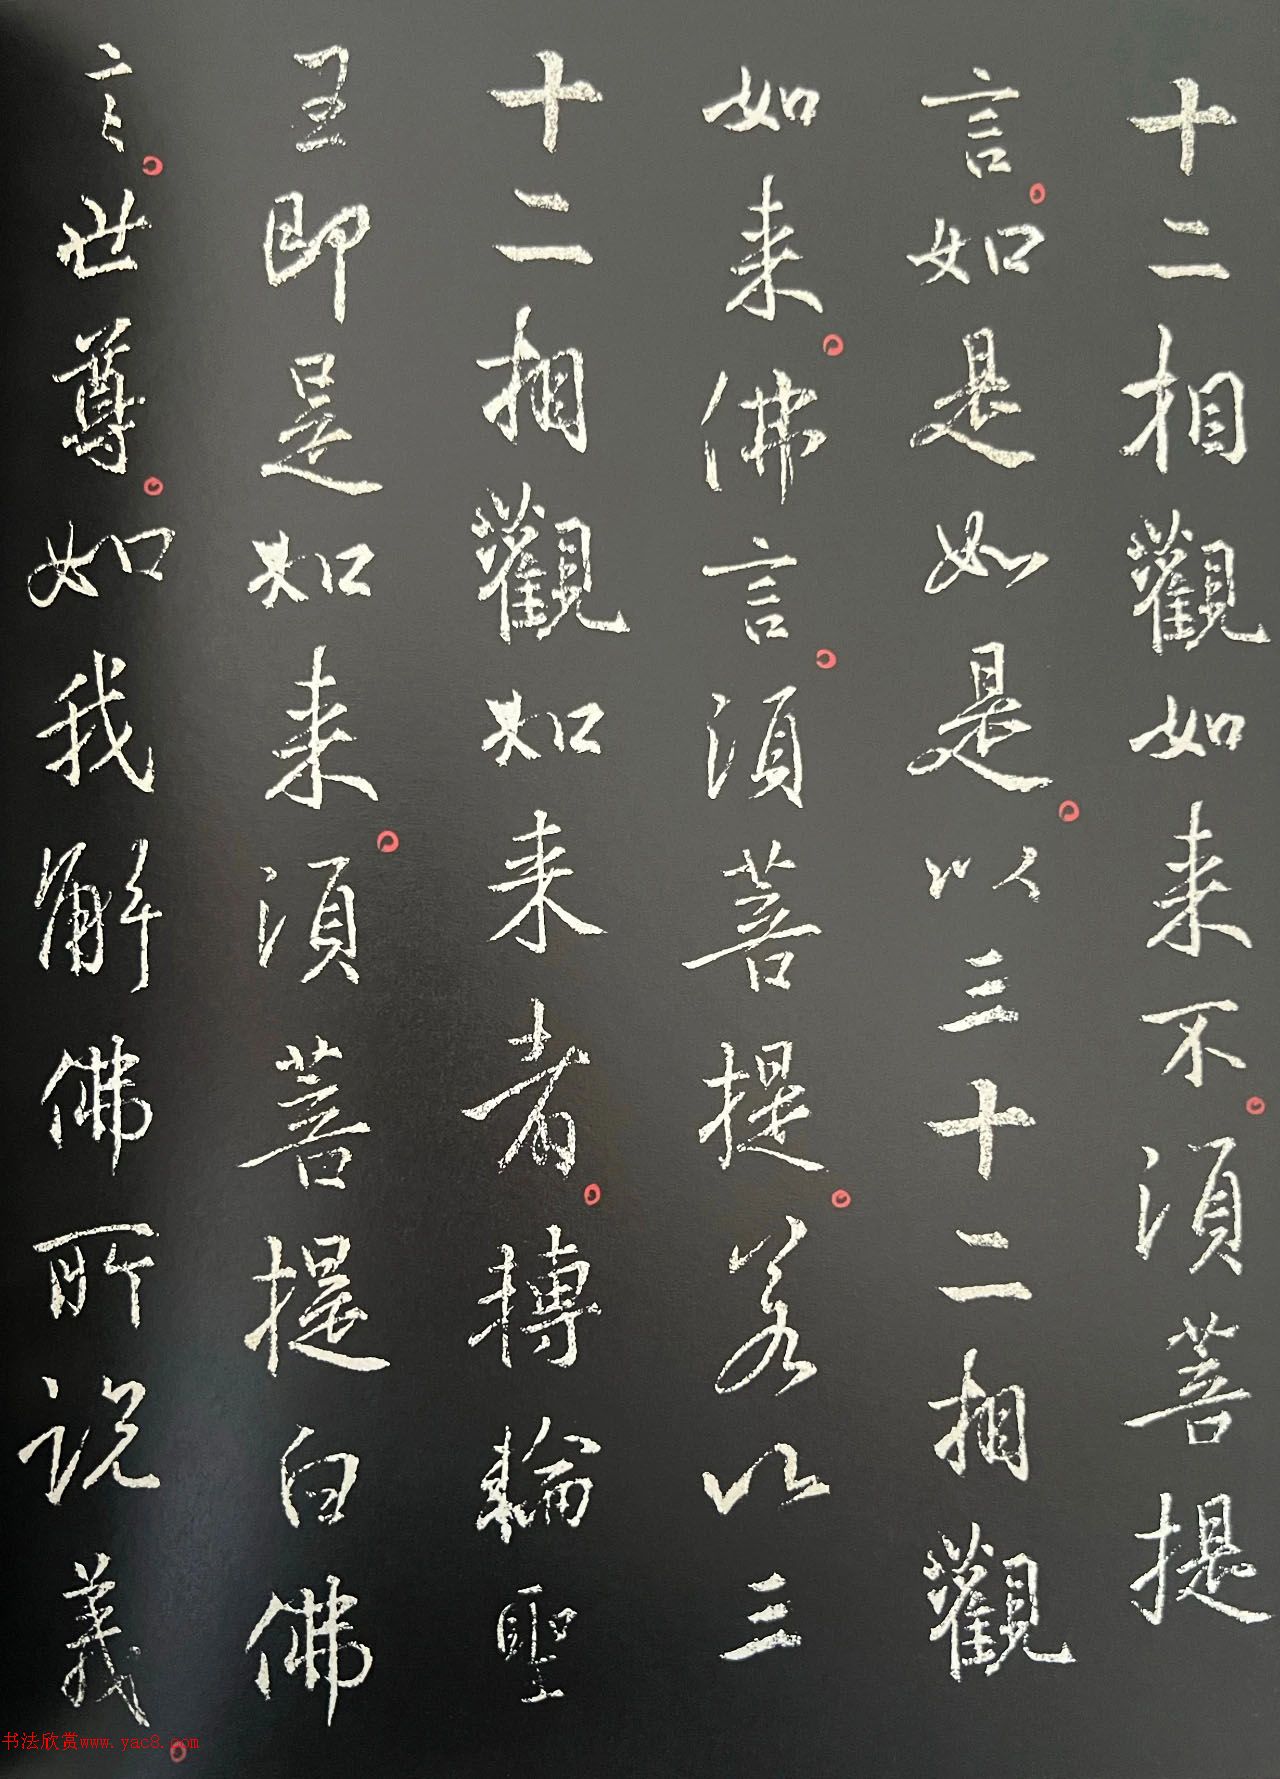 十二相觀如来不。須菩提
言。如是如是。以三十二相觀
如来。佛言。須菩提。若以三
十二相觀如来者。搏輪聖
王即是如来。須菩提白佛
言。世尊。如我解佛所説義。
书法欣赏www.yac8.com